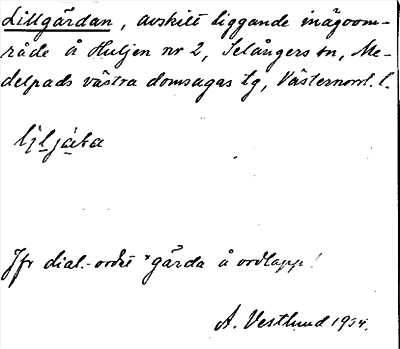 Lillgärdan, avskilt liggande inägoom-
råde å Huljen nr 2, Selångers sn, Me-
delpads västra domsagas tg, Västernorrl. l.
Jfr dial.-ordet "gärda å ordlapp!
A. Vestlund 1934.